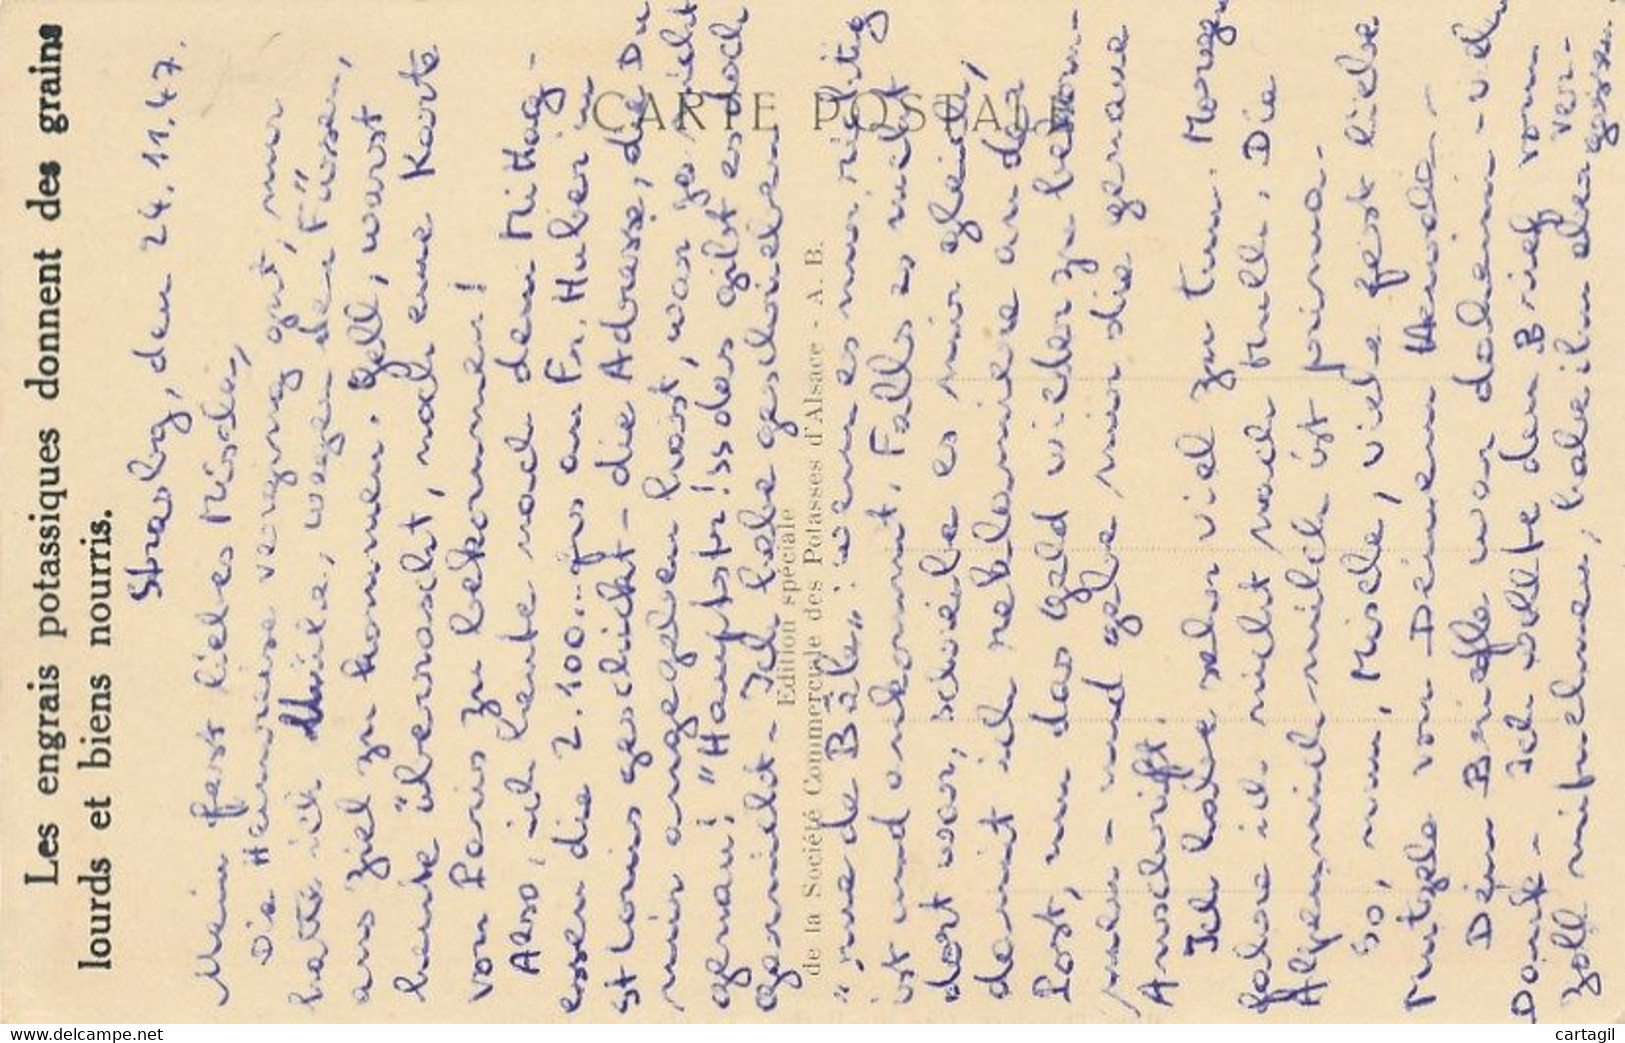 Les engrais potassiques donnent des grains
lourds et biens nourris.
CARTE POSTALE
Edition spéciale
de la Société Commerciale des Potasses d'Alsace - A. B.
Strasbg, den 24.11.47.
Mein fest liebes Misele,
Die Heimreise verging gut, nur
hatte ich Mühle, wegen den Füssen,
ans Ziel zu kommen. Gell, warst
heute überrascht, noch eine Karte
von Paris zu bekommen!
Also, ich heute nach dem Mittag-
essen die 2.100.- frs an Fr. Huber in
St Louis geschickt - die Adresse, die Du
mir angegeben hast, war ja nicht
genau! "Hauptstr! ss das gibt es doch
garnicht - Ich habe geschrieben
"rue de Bâle": wenn es nur richtig
ist und ankommt. Falls es nicht
dort war, schreibe es mir gleich,
damit ich reklamiere an der
Post, um das Geld wieder zu bekom-
men - und gebe mir die genaue
Anschrift.
Ich habe sehr viel zu tun. Morgen
fahre ich nicht nach Mulh. Die
Alpenmilch ist prima.
So, nun, Misele, viele fest liebe
Muntzele von Deinem Hansele -
Dein Briefle war daheim - vielen
Dank - Ich wollte den Brief vom
Zoll mitnehmen, habe ihn aber ver-
gessen.
cartagil